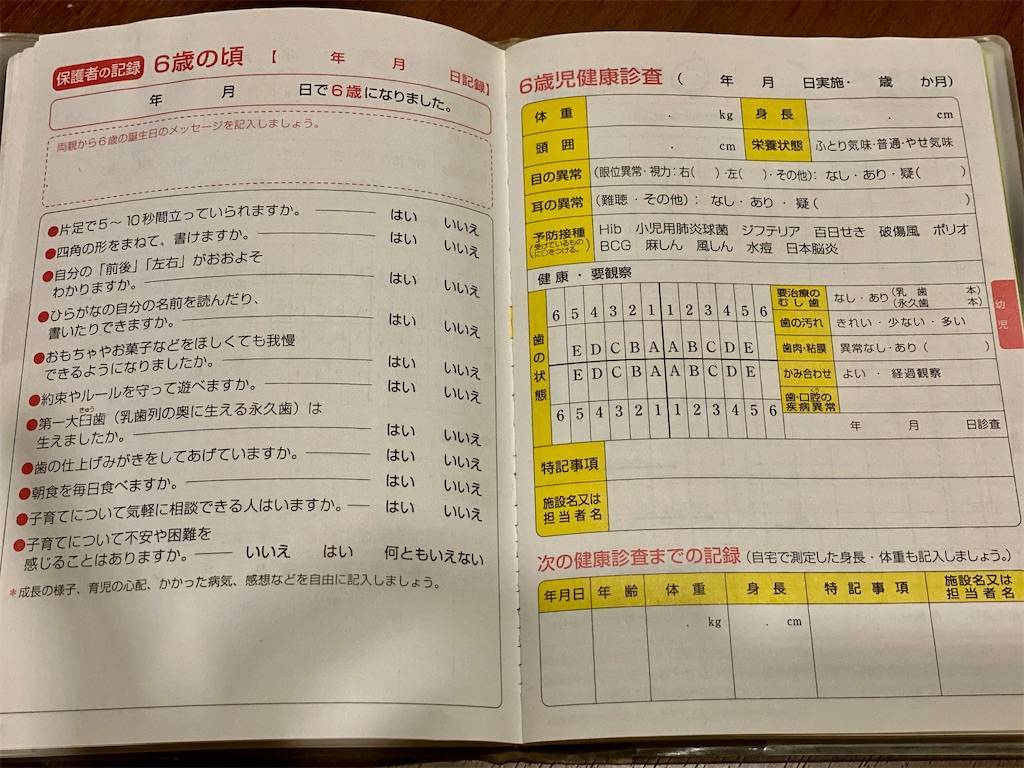 保護者の記録 6歳の頃 【 年 月 日記録】
年 月 日で6歳になりました。
両親から6歳の誕生日のメッセージを記入しましょう。
●片足で5～10秒間立っていられますか。 はい いいえ
●四角の形をまねて、書けますか。 はい いいえ
●自分の「前後」「左右」がおおよそ
わかりますか。 はい いいえ
●ひらがなの自分の名前を読んだり、
書いたりできますか。 はい いいえ
●おもちゃやお菓子などをほしくても我慢
できるようになりましたか。 はい いいえ
●約束やルールを守って遊べますか。 はい いいえ
きゅう
●第一大臼歯（乳歯列の奥に生える永久歯）は
生えましたか。 はい いいえ
●歯の仕上げみがきをしてあげていますか。 はい いいえ
●朝食を毎日食べますか。 はい いいえ
●子育てについて気軽に相談できる人はいますか。 はい いいえ
●子育てについて不安や困難を
感じることはありますか。 いいえ はい 何ともいえない
＊成長の様子、育児の心配、かかった病気、感想などを自由に記入しましょう。
6歳児健康診査 （ 年 月 日実施・ 歳 か月）
体重 . kg 身長 . cm
頭囲 . cm 栄養状態 ふとり気味・普通・やせ気味
目の異常 （眼位異常・視力：右（ ）・左（ ）・その他）：なし・あり・疑（ ）
耳の異常 （難聴・その他）：なし・あり・疑（ ）
予防接種 （受けているものに○をつける。） Hib 小児用肺炎球菌 ジフテリア 百日せき 破傷風 ポリオ
BCG 麻しん 風しん 水痘 日本脳炎
健康・要観察
歯の状態
6 5 4 3 2 1 1 2 3 4 5 6
E D C B A A B C D E
E D C B A A B C D E
6 5 4 3 2 1 1 2 3 4 5 6
要治療のむし歯 なし・あり（乳歯 本）（永久歯 本）
歯の汚れ きれい・少ない・多い
歯肉・粘膜 異常なし・あり（ ）
かみ合わせ よい・経過観察
くう
歯・口腔の疾病異常
年 月 日診査
特記事項
施設名又は
担当者名
幼児
次の健康診査までの記録（自宅で測定した身長・体重も記入しましょう。）
年月日 年齢 体重 身長 特記事項 施設名又は担当者名
. kg . cm